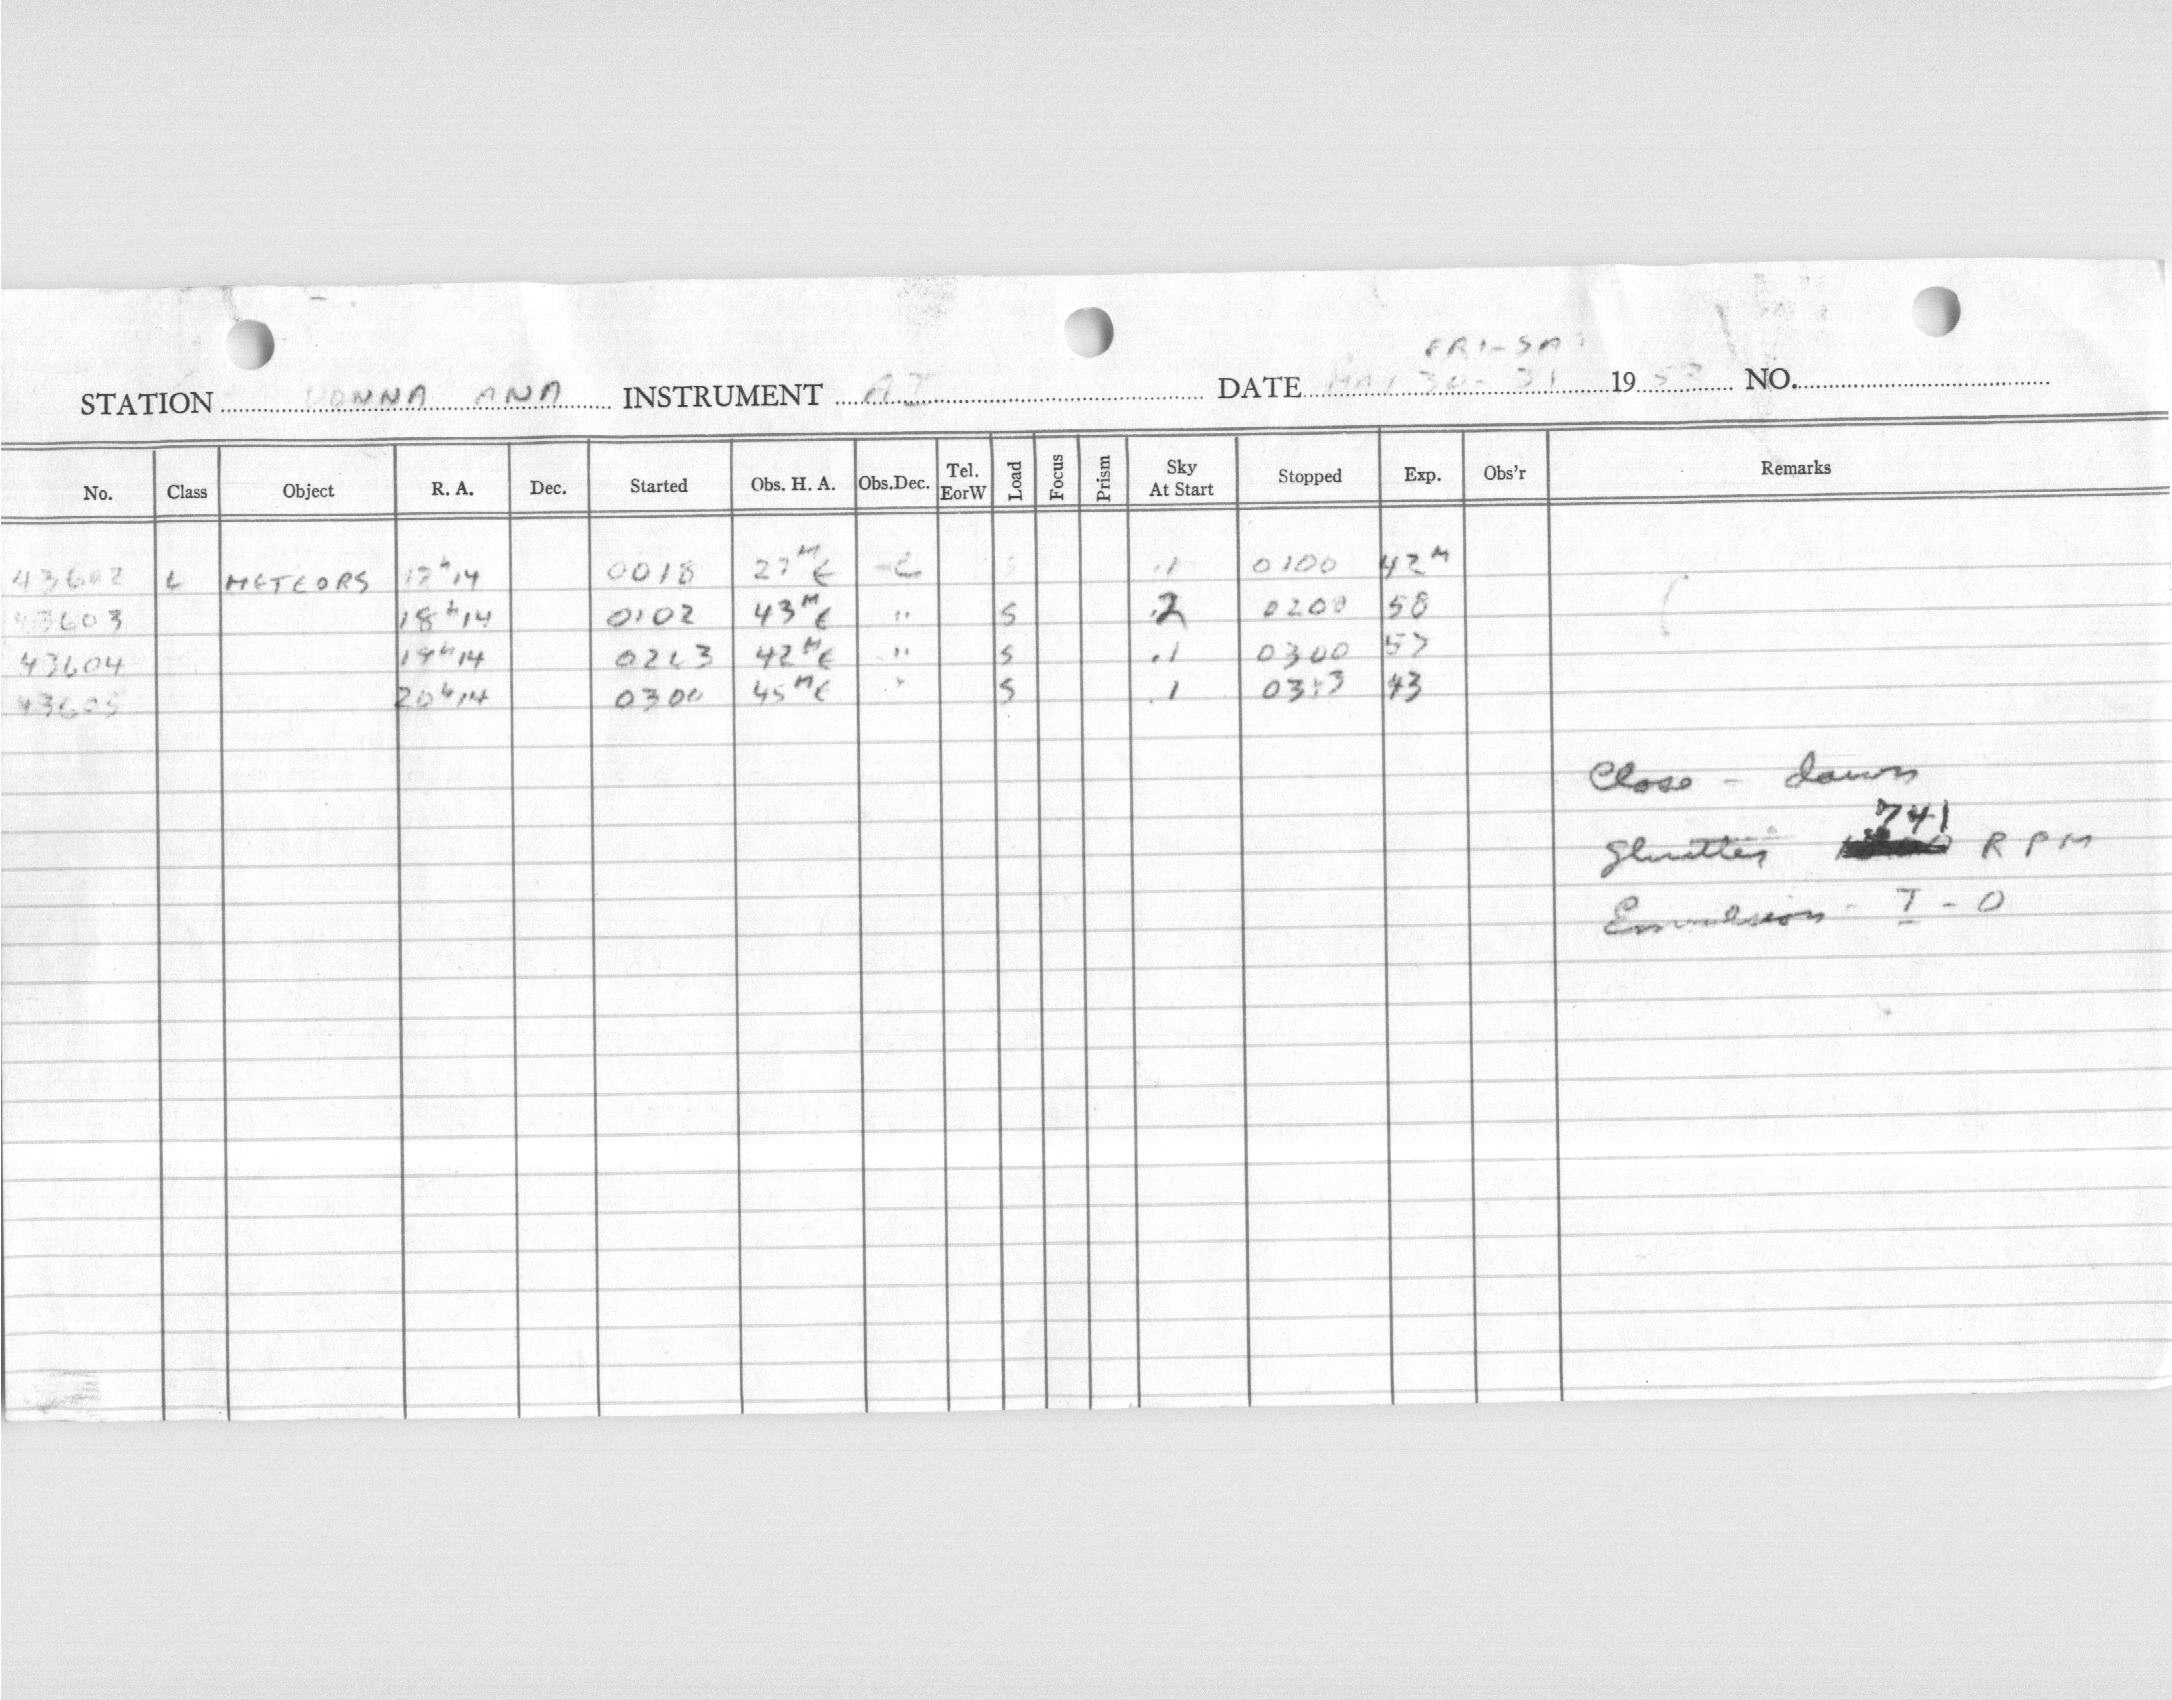 FRI-SAT
STATION DONNA ANA INSTRUMENT AI DATE MAY 30-31 19 NO.
No. Class Object R. A. Dec. Started Obs. H. A. Obs.Dec. Tel. EorW Load Focus Prism Sky At Start Stopped Exp. Obs'r Remarks
43602 L METEORS 17ʰ14 0018 27ᴹE .1 0100 42ᴹ
43603 18ʰ14 0102 43ᴹE " S .2 0200 58
43604 19ʰ14 42ᴹE " S .1 0300 57
43605 20ʰ14 0300 45ᴹE " S .1 43
Close - dawn
741
Shutter RPM
Emulsion - I - O